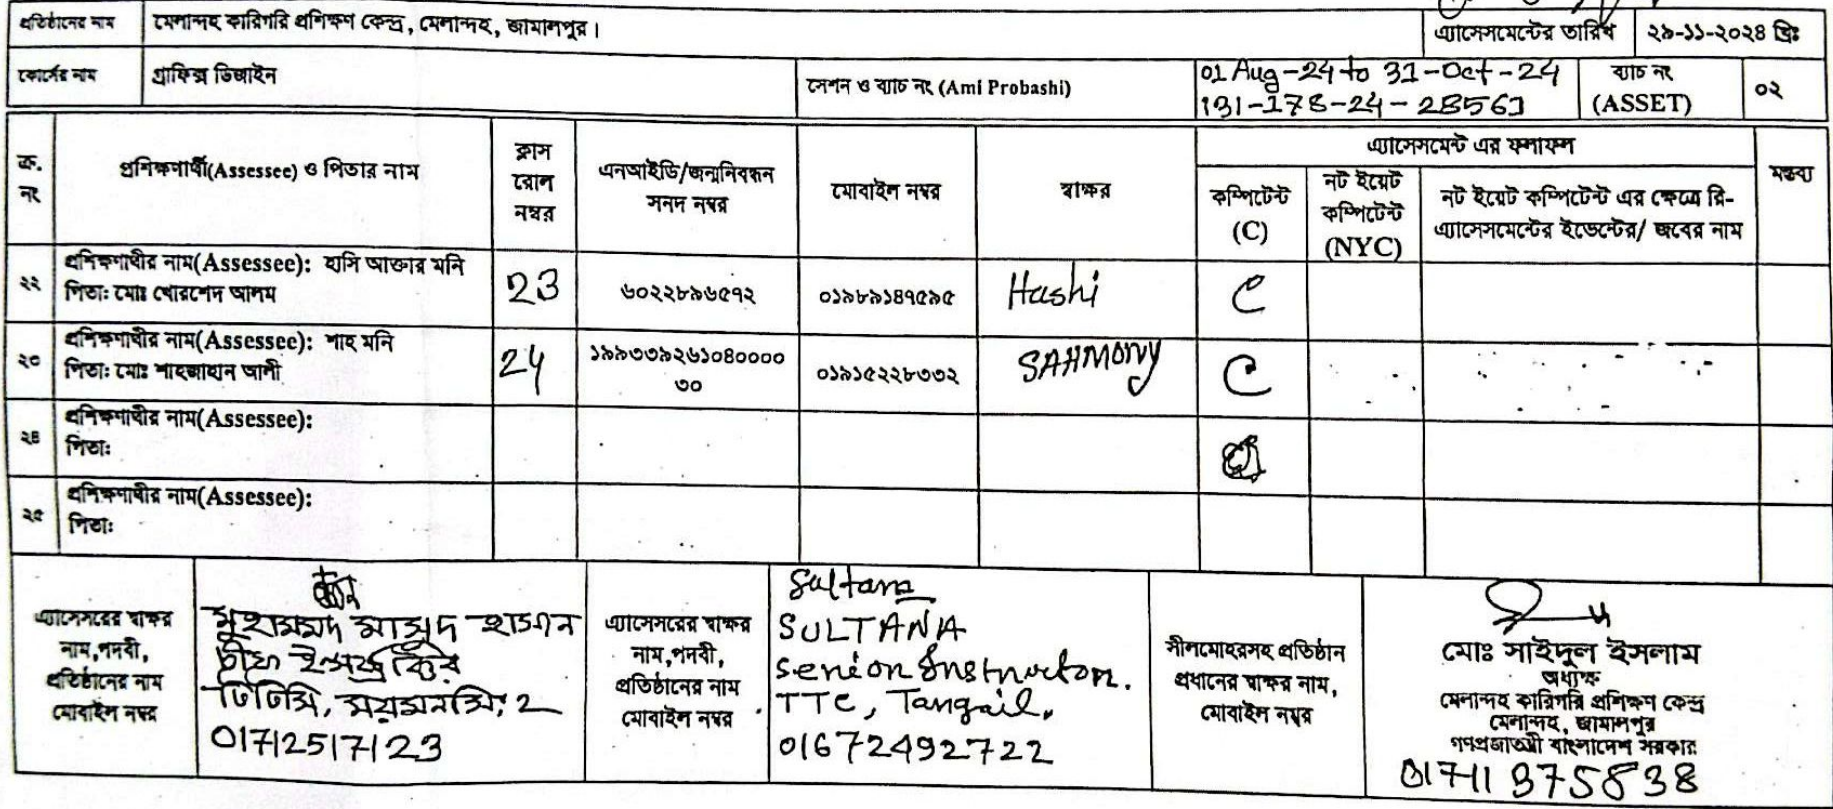 প্রতিষ্ঠানের নাম মেলান্দহ কারিগরি প্রশিক্ষণ কেন্দ্র, মেলান্দহ, জামালপুর। এ্যাসেসমেন্টের তারিখ ২৯-১১-২০২৪ খ্রিঃ
কোর্সের নাম গ্রাফিক্স ডিজাইন সেশন ও ব্যাচ নং (Ami Probashi) 01 Aug-24 to 31-Oct-24 ব্যাচ নং ০২
131-178-24-28561 (ASSET)
ক্র. নং প্রশিক্ষণার্থী(Assessee) ও পিতার নাম ক্লাস রোল নম্বর এনআইডি/জন্মনিবন্ধন সনদ নম্বর মোবাইল নম্বর স্বাক্ষর এ্যাসেসমেন্ট এর ফলাফল মন্তব্য
কম্পিটেন্ট (C) নট ইয়েট কম্পিটেন্ট (NYC) নট ইয়েট কম্পিটেন্ট এর ক্ষেত্রে রি-এ্যাসেসমেন্টের ইভেন্টের/ জবের নাম
২২ প্রশিক্ষণার্থীর নাম(Assessee): হাসি আক্তার মনি 23 ৬০২২৮৯৬৫৭২ ০১৯৮৯১৪৭৫৯৫ Hashi C
পিতা: মোঃ খোরশেদ আলম
২৩ প্রশিক্ষণার্থীর নাম(Assessee): শাহ মনি 24 ১৯৯৩৩৯২৬১০৪০০০০ ০১৯১৫২২৮৩৩২ SAHMONY C
পিতা: মোঃ শাহজাহান আলী ৩০
২৪ প্রশিক্ষণার্থীর নাম(Assessee):
পিতা:
২৫ প্রশিক্ষণার্থীর নাম(Assessee):
পিতা:
এ্যাসেসরের স্বাক্ষর
নাম,পদবী,
প্রতিষ্ঠানের নাম
মোবাইল নম্বর
মুহাম্মদ মাসুদ হাসান
চীফ ইন্সট্রাক্টর
টিটিসি, ময়মনসিংহ
01712517123
এ্যাসেসরের স্বাক্ষর
নাম,পদবী,
প্রতিষ্ঠানের নাম
মোবাইল নম্বর
Sultana
SULTANA
Senior Instructor.
TTC, Tangail.
01672492722
সীলমোহরসহ প্রতিষ্ঠান
প্রধানের স্বাক্ষর নাম,
মোবাইল নম্বর
মোঃ সাইদুল ইসলাম
অধ্যক্ষ
মেলান্দহ কারিগরি প্রশিক্ষণ কেন্দ্র
মেলান্দহ, জামালপুর
গণপ্রজাতন্ত্রী বাংলাদেশ সরকার
01711375838